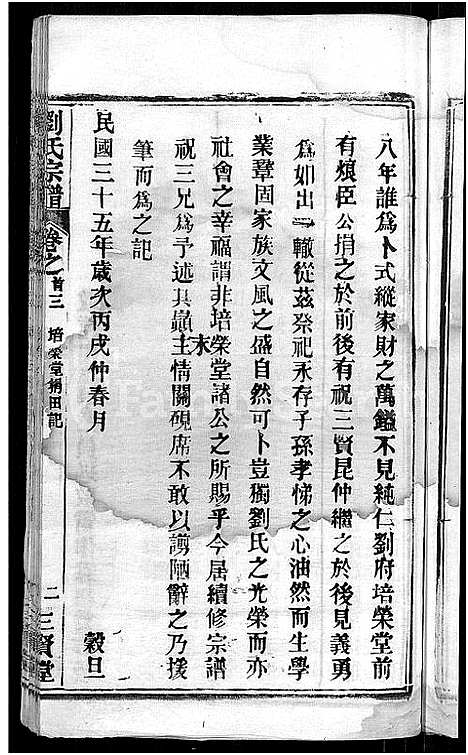 八年誰為卜式縱家財之萬鎰不見純仁劉府培榮堂前
有烺臣公捐之於前後有祝三賢昆仲繼之於後見義勇
為如出一轍從茲祭祀永存子孫孝悌之心油然而生學
業鞏固家族文風之盛自然可卜豈獨劉氏之光榮而亦
社會之幸福謂非培榮堂諸公之所賜乎今居續修宗譜
祝三兄為予述其顛末主情關硯席不敢以謭陋辭之乃援
筆而為之記
民國三十五年歲次丙戌仲春月 穀旦
劉氏宗譜 卷之首三 培榮堂捐田記 二 三賢堂